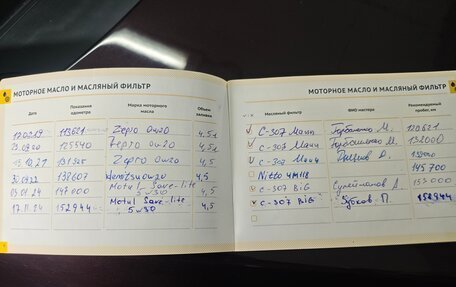 МОТОРНОЕ МАСЛО И МАСЛЯНЫЙ ФИЛЬТР
Дата Показания одометра Марка моторного масла Объем заливки
113621 Zepro 0w20 4,5л
125540 Zepro 0w20 4,5л
131325 Zepro 0w20 4,5
138607 0w20 4,5
03.01.24 147000 Motul Save-lite 5w30 4,5
17.11.24 152944 Motul Save-lite 5w30 4,5
МОТОРНОЕ МАСЛО И МАСЛЯНЫЙ ФИЛЬТР
Масляный фильтр ФИО мастера Рекомендуемый пробег, км
C-307 Mann М. 120621
C-307 Mann М. 132000
C-307 Mann А.
Nitto 145700
C-307 BiG Сулейманов А.
C-307 BiG Зубков П. 152944